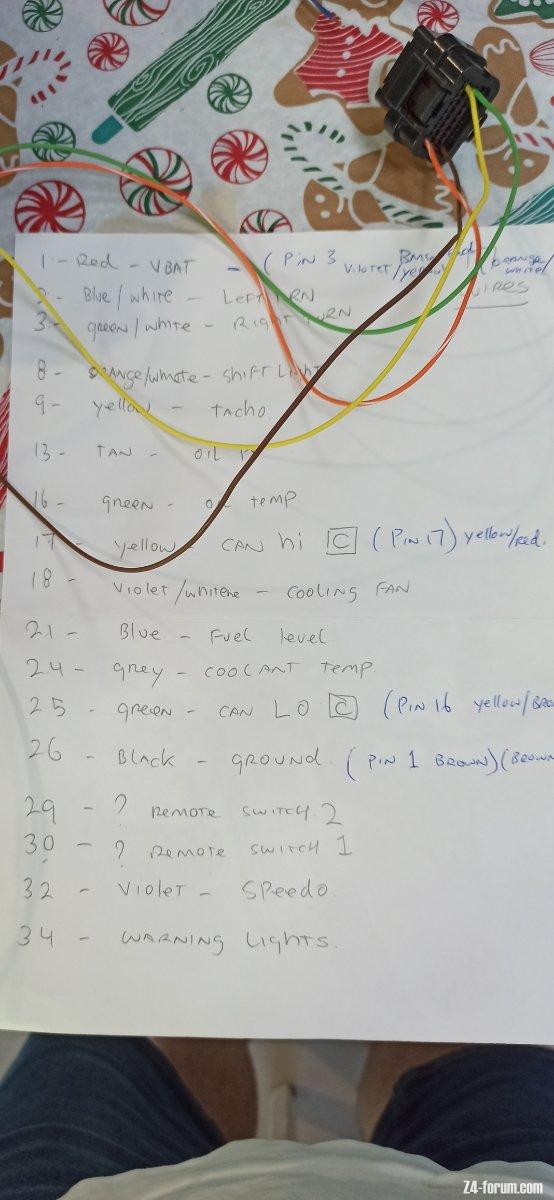 1 - Red - VBAT - ( Pin 3 BMW violet/yellow (orange/white/ wires
2 - Blue/white - Left turn
3 - green/white - Right turn
8 - orange/white - shift Light
9 - yellow - tacho
13 - TAN - oil
16 - green - oil temp
17 - yellow - CAN hi C (PIN 17) yellow/red.
18 - Violet/white - cooling FAN
21 - Blue - Fuel level
24 - grey - coolant temp
25 - green - CAN LO C (PIN 16 yellow/BRO
26 - Black - GROUND. (PIN 1 BROWN)(BROWN
29 - ? Remote switch 2
30 - ? Remote switch 1
32 - Violet - Speedo.
34 - WARNING Lights.
Z4-forum.com